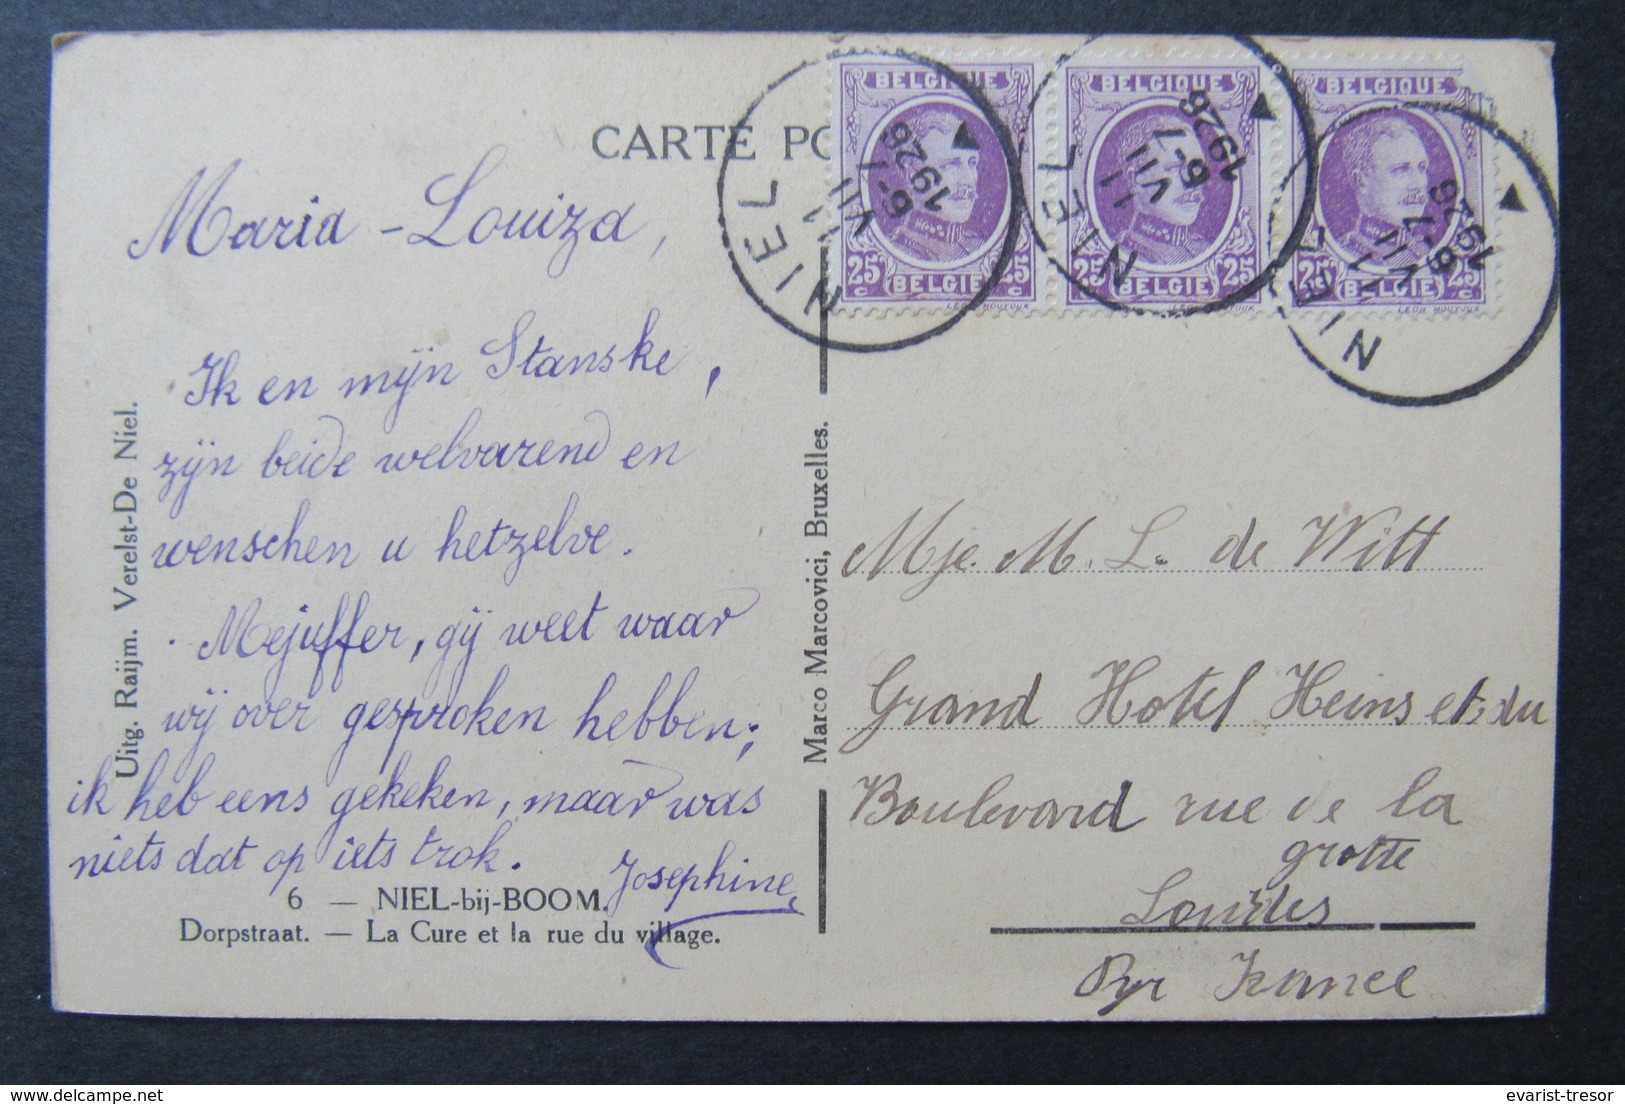 CARTE PO
BELGIQUE
25c BELGIË 25c
LEON HOUYOUX
BELGIQUE
25c BELGIË 25c
BELGIQUE
25c BELGIË 25c
LEON HOUYOUX
NIEL
11 VII
6-7
1926
NIEL
11 VII
6-7
1926
NIEL
11 VII
6-7
1926
Maria-Louiza,
Ik en mijn Stanske,
zijn beide welvarend en
wenschen u hetzelve.
Mejuffer, gij weet waar
wij over gesproken hebben;
ik heb eens gekeken, maar was
niets dat op iets trok.
Josephine,
6 — NIEL-bij-BOOM.
Dorpstraat. — La Cure et la rue du village.
Uitg. Raijm. Verelst-De Niel.
Marco Marcovici, Bruxelles.
Mje. M. L. de Witt
Grand Hotel Heins et du
Boulevard rue de la
grotte
Lourdes
Pyr France
delcampe.net
evarist-tresor